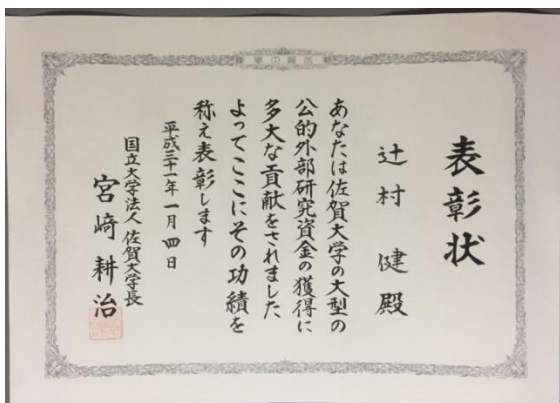 表彰状
辻村 健 殿
あなたは佐賀大学の大型の
公的外部研究資金の獲得に
多大な貢献をされました
よってここにその功績を
称え表彰します
平成三十一年一月四日
国立大学法人 佐賀大学長
宮﨑耕治